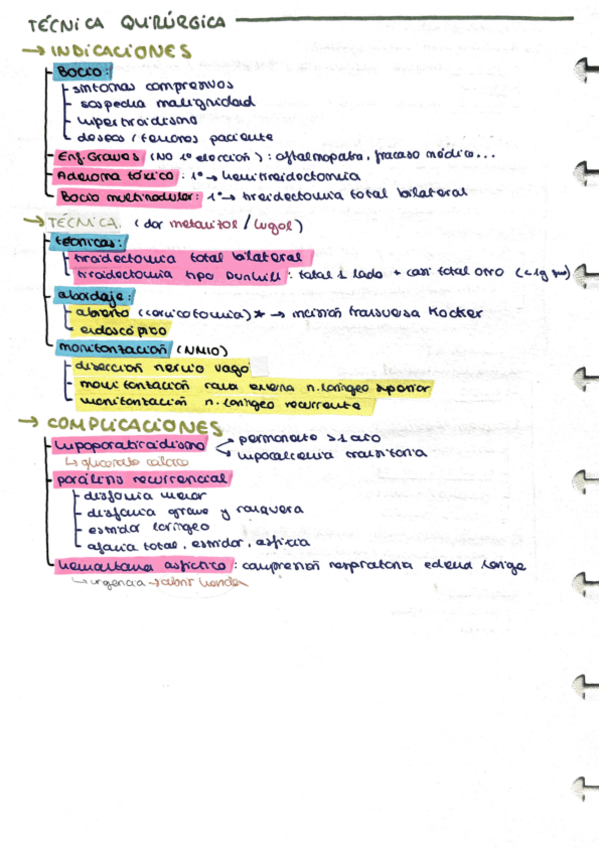 TÉCNICA QUIRÚRGICA
→ INDICACIONES
Bocio:
síntomas compresivos
sospecha malignidad
hipertiroidismo
deseos / temores paciente
Enf. Graves (NO 1ª elección): oftalmopatía, fracaso médico...
Adenoma tóxico: 1º → hemitiroidectomía
Bocio multinodular: 1º → tiroidectomía total bilateral
→ TÉCNICA. (dar metamizol / lugol)
técnicas:
tiroidectomía total bilateral
tiroidectomía tipo Dunhill: total 1 lado + casi total otro (<1g)
abordaje:
abierto (cervicotomía)* → incisión transversa Kocher
endoscópico
monitorización (NMIO)
disección nervio vago
monitorización rama externa n. laríngeo superior
monitorización n. laríngeo recurrente
→ COMPLICACIONES
hipoparatiroidismo
permanente >1 año
hipocalcemia transitoria
↳ gluconato cálcico
parálisis recurrencial
disfonía menor
disfonía grave y ronquera
estridor laríngeo
afonía total, estridor, asfixia
hematoma asfíctico: compresión respiratoria edema laringe
↳ urgencia → abrir herida